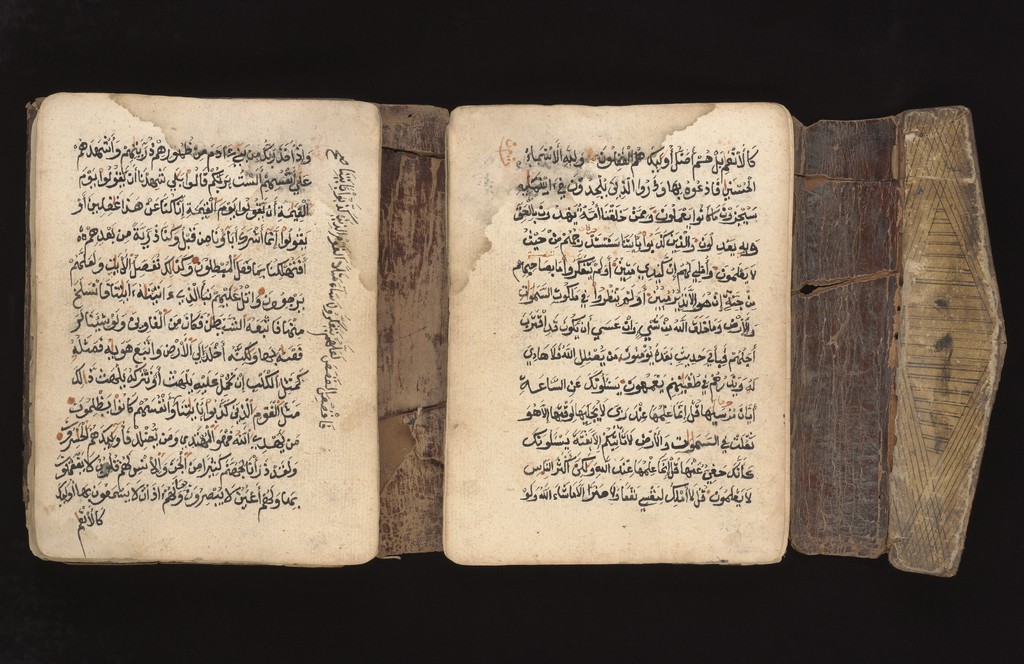 وإذ أخذ ربك من بني ءادم من ظهورهم ذريتهم وأشهدهم
على أنفسهم ألست بربكم قالوا بلى شهدنا أن تقولوا يوم
القيمة أن تقولوا يوم القيمة إنا كنا عن هذا غفلين أو
تقولوا إنما أشرك ءاباؤنا من قبل وكنا ذرية من بعدهم
أفتهلكنا بما فعل المبطلون وكذلك نفصل الأيت ولعلهم
يرجعون واتل عليهم نبأ الذي ءاتينه ءايتنا فانسلخ
منها فأتبعه الشيطن فكان من الغاوين ولو شئنا لر
فعنه بها ولكنه أخلد إلى الأرض واتبع هويه فمثله
كمثل الكلب إن تحمل عليه يلهث أو تتركه يلهث ذلك
مثل القوم الذين كذبوا بايتنا وأنفسهم كانوا يظلمون
من يهد الله فهو المهتدي ومن يضلل فأوليك هم الخسرون
ولقد ذرأنا لجهنم كثيرا من الجن والإنس لهم قلوب لا يفقهون
بها ولهم أعين لا يبصرون بها ولهم ءاذان لا يسمعون بها أوليك
كالأنعم
فاقصص القصص لعلهم يتفكرون ساء مثلا القوم الذين كذبوا بايتنا صح
كالأنعم بل هم أضل أوليك هم الغفلون ولله الأسماء
الحسنى فادعوه بها وذروا الذين يلحدون في أسميه
سيجزون ما كانوا يعملون وممن خلقنا أمة يهدون بالحق
وبه يعدلون والذين كذبوا بايتنا سنستدرجهم من حيث
لا يعلمون وأملي لهم إن كيدي متين أولم يتفكروا ما بصاحبهم
من جنة إن هو إلا نذير مبين أولم ينظروا في ملكوت السموت
والأرض وما خلق الله من شيء وأن عسى أن يكون قد اقترب
أجلهم فبأي حديث بعده يومنون من يضلل الله فلا هادي
له ويذرهم في طغينهم يعمهون يسلونك عن الساعة
أيان مرسيها قل إنما علمها عند ربي لا يجليها لوقتها إلا هو
ثقلت في السموت والأرض لا تأتيكم إلا بغتة يسلونك
كأنك حفي عنها قل إنما علمها عند الله ولكن أكثر الناس
لا يعلمون قل لا أملك لنفسي نفعا ولا ضرا إلا ما شاء الله ولو